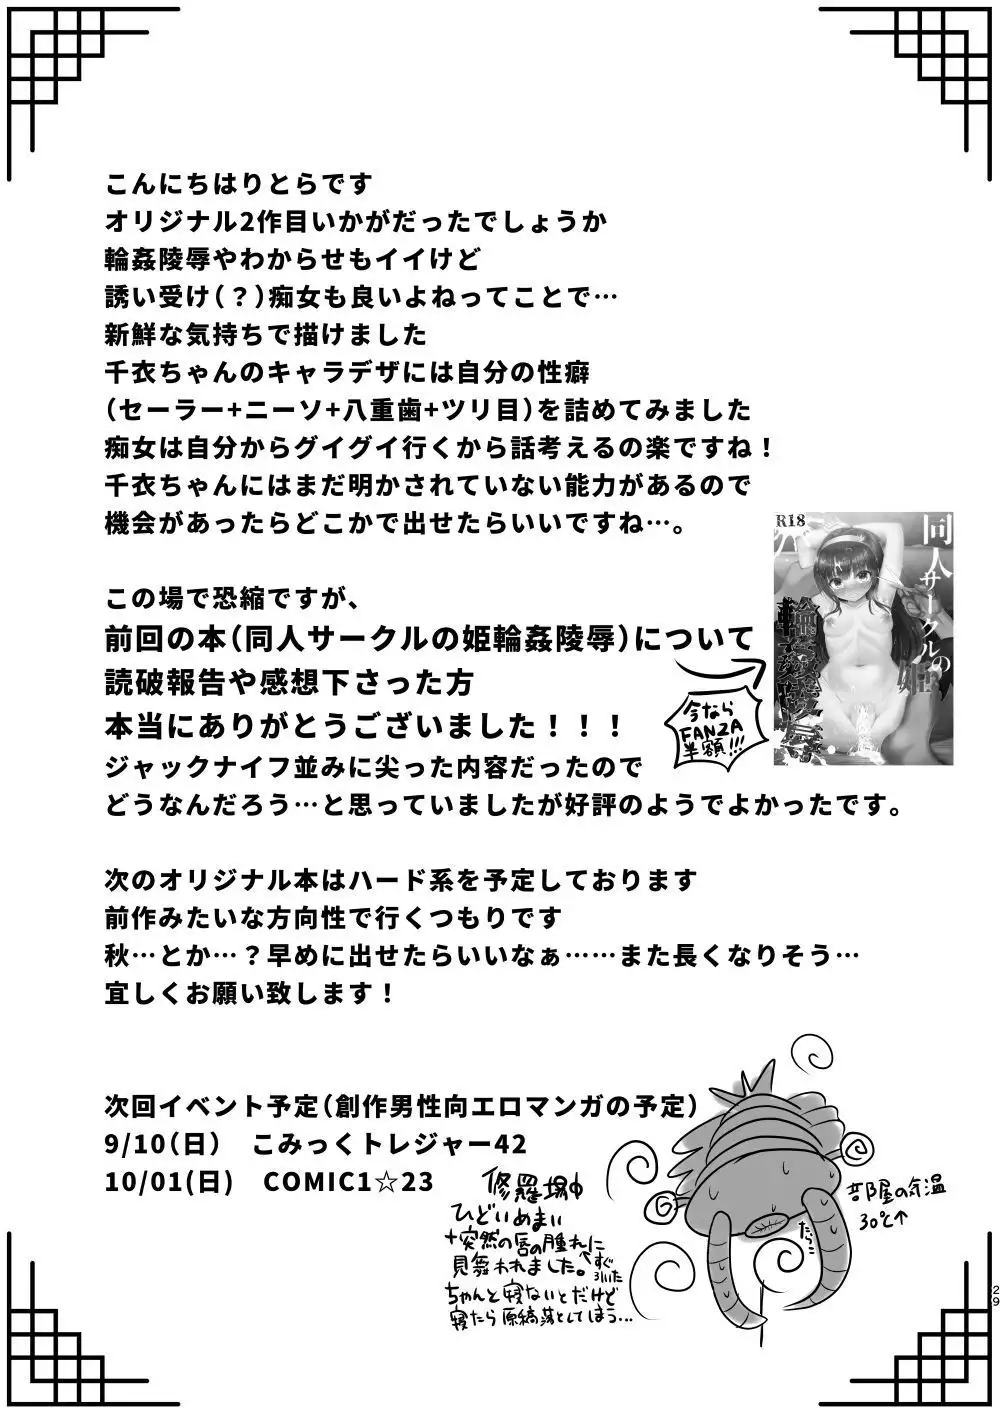 こんにちはりとらです
オリジナル2作目いかがだったでしょうか
輪姦陵辱やわからせもイイけど
誘い受け(？)痴女も良いよねってことで…
新鮮な気持ちで描けました
千衣ちゃんのキャラデザには自分の性癖
(セーラー+ニーソ+八重歯+ツリ目)を詰めてみました
痴女は自分からグイグイ行くから話考えるの楽ですね！
千衣ちゃんにはまだ明かされていない能力があるので
機会があったらどこかで出せたらいいですね…。
この場で恐縮ですが、
前回の本(同人サークルの姫輪姦陵辱)について
読破報告や感想下さった方
本当にありがとうございました！！！
ジャックナイフ並みに尖った内容だったので
どうなんだろう…と思っていましたが好評のようでよかったです。
R18
同人サークルの姫
輪姦陵辱
今なら
FANZA
半額!!!
次のオリジナル本はハード系を予定しております
前作みたいな方向性で行くつもりです
秋…とか…？早めに出せたらいいなぁ……また長くなりそう…
宜しくお願い致します！
次回イベント予定(創作男性向エロマンガの予定)
9/10(日)　こみっくトレジャー42
10/01(日)　COMIC1☆23
修羅場中
ひどいめまい
+突然の唇の腫れに
見舞われました。
すぐ
引いた
ちゃんと寝ないとだけど
寝たら原稿落としてしまう…
たらこ
部屋の気温
30℃↑
29